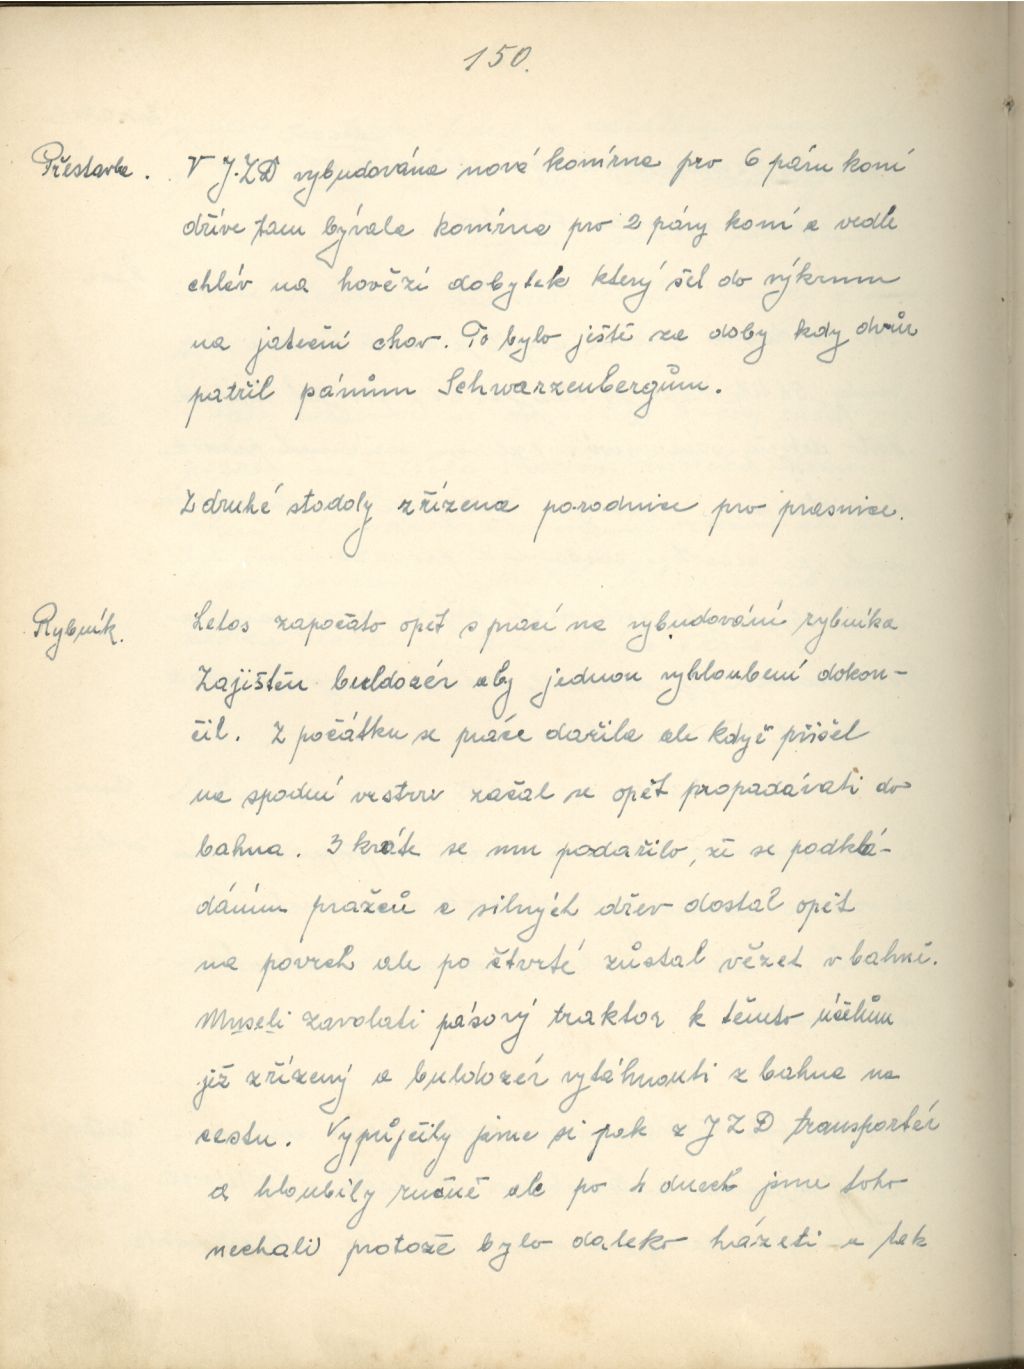 150.
Přestavba. V J.Z.D vybudována nová konírna pro 6 páru koní
dříve tam bývala konírna pro 2 páry koní a vedle
chlév na hovězí dobytek který šel do výkrmu
na jateční chov. To bylo ještě za doby kdy dvůr
patřil pánům Schwarzenbergům.
Z druhé stodoly zřízena porodnice pro prasnice.
Rybník. Letos započato opět s prací na vybudování rybníka
Zajištěn buldozér aby jednou vyhloubení dokon-
čil. Z počátku se práce dařila ale když přišel
na spodní vrstvu začal se opět propadávati do
bahna. 3 kráte se mu podařilo, že se podklá-
dáním pražců a silných dřev dostal opět
na povrch ale po čtvrté zůstal vězet v bahně.
Museli zavolati pásový traktor k těmto účelům
již zřízený a buldozér vytáhnouti z bahna na
cestu. Vypůjčily jsme si pak z JZD transportér
a hloubily ručně ale po 4 dnech jsme toho
nechali protože bylo daleko házeti a tak